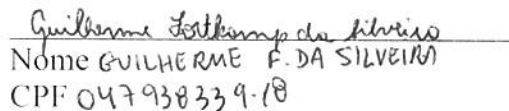 Guilherme Fortkamp da Silveira
Nome GUILHERME F. DA SILVEIRA
CPF 047938339-18